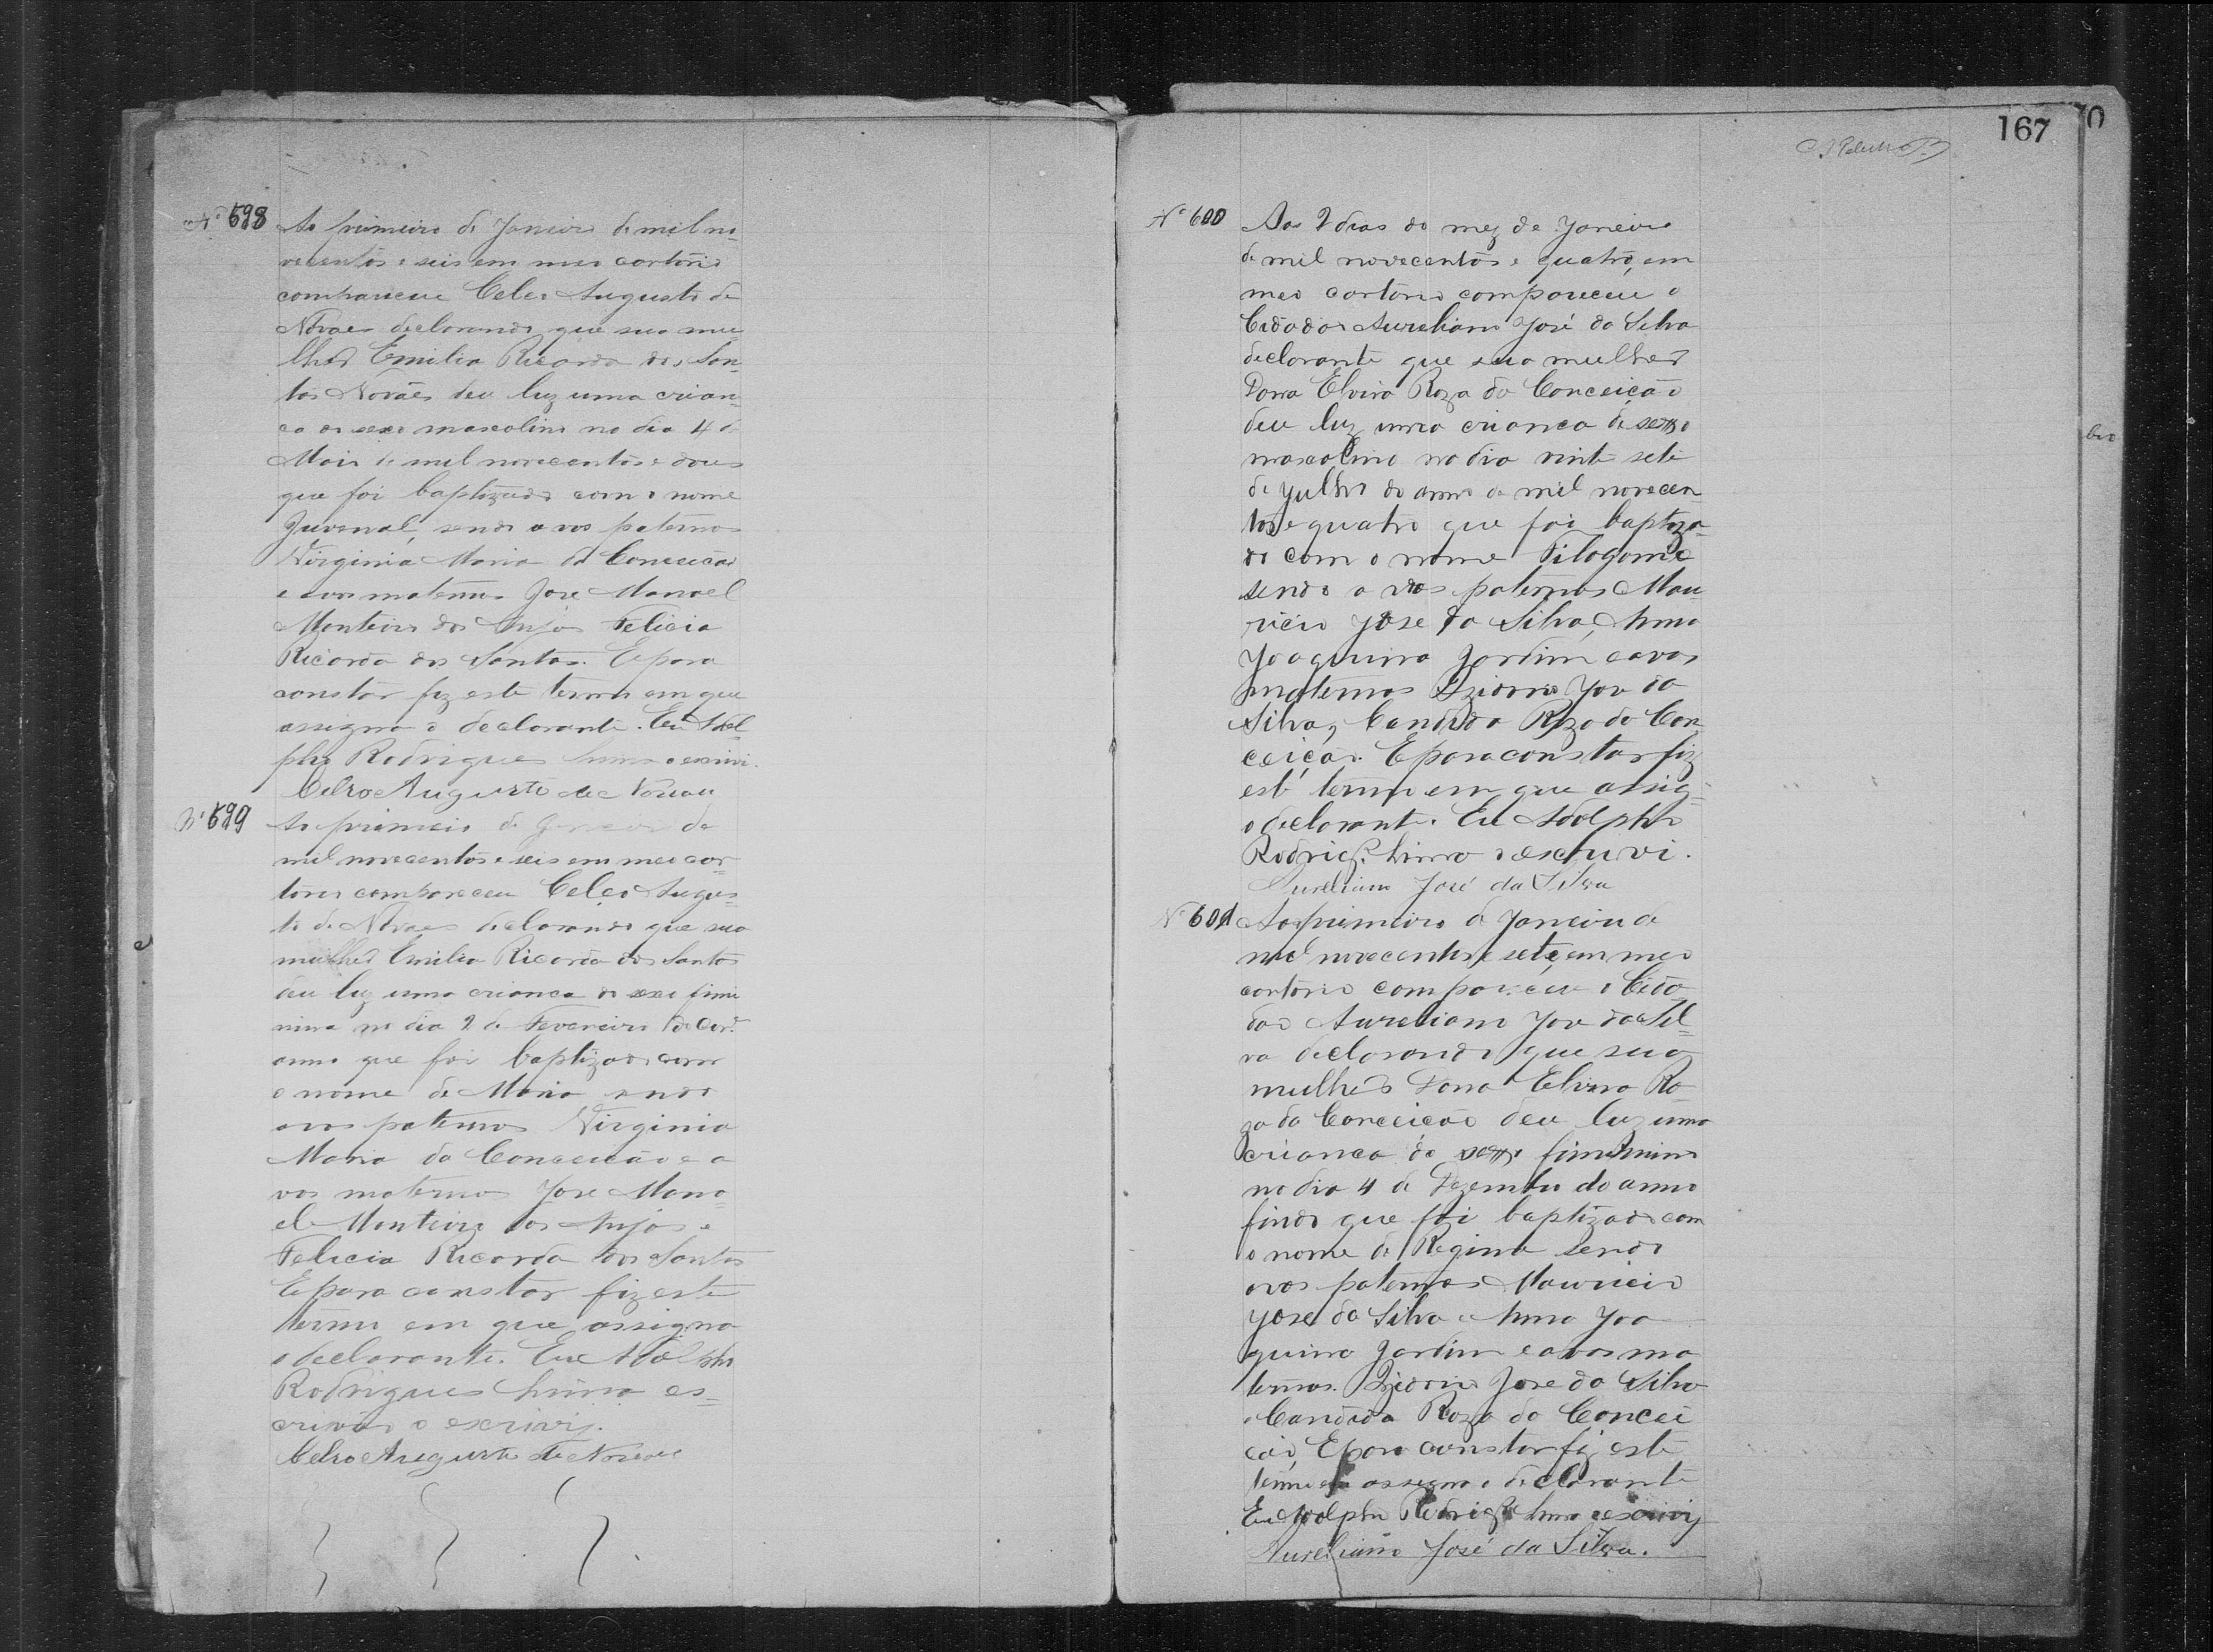 Nº 598
Ao primeiro de Janeiro de mil no-
vecentos e seis em meu cartorio
compareceu Celso Augusto de
Novaes declarando que sua mu
lher Emilia Ricarda dos San-
tos Novães deu luz uma crian-
ca do sexo mascolino no dia 4 de
Maio de mil novecentos e dous
que foi baptizado com o nome
Juvenal, sendo avos paternos
Virginia Maria da Conceicão
e avos maternos Jose Manoel
Monteiro dos Anjos Felicia
Ricarda dos Santos. E para
constar fiz este termo em que
assigna o declarante. Eu Adol-
pho Rodrigues Lima o escrivi.
Celso Augusto de Novaes
Nº 599
Ao primeiro de Janeiro de
mil novecentos e seis em meu car-
torio compareceu Celço Augus-
to de Novaes declarando que sua
mulher Emilia Ricarda dos Santos
deu luz uma crianca do sexo fimi
nina no dia 2 de Fevereiro do
anno que foi baptizado com
o nome de Maria sendo
avos paternos Virginia
Maria da Conceicão e a
vos maternos Jose Mano
el Monteiro dos Anjos e
Felicia Ricarda dos Santos
E para constar fiz este
termo em que assigna
o declarante. Eu Adolpho
Rodrigues Lima es-
crivão o escrivij.
Celso Augusto de Novaes
167
Nº 600
Aos 2 dias do mez de Janeiro
de mil novecentos e quatro, em
meo cartorio compareceu o
Cidadão Aureliano José da Silva
declarante que sua mulher
Dona Elvira Roza da Conceição
deu luz uma crianca de sexso
mascolino no dia vinte sete
de Julho do anno de mil novecen
tos e quatro que foi baptiza-
do com o nome Filogome
sendo avos paternos Mau
ricio Jose da Silva, Anna
Joaquina Jardim e avos
maternos Izidorio Jose da
Silva, Candida Roza da Con
ceição. E para constar fiz
este termo em que assig-
o declarante. Eu Adolpho
Rodrigs. Lima o escruvi.
Aureliano José da Silva
Nº 601
Ao primeiro de Janeiro de
mil novecentos e sete, em meo
cartorio compareceu o Cida
dão Aureliano Jose da Sil-
va declarando que sua
mulher Dona Elvira Ro
za da Conceicão deu luz uma
crianca do sexso fiminino
no dia 4 de Dezembro do anno
findo que foi baptizado com
o nome de Regina sendo
avos paternos Mauricio
Jose da Silva e Anna Joa
quina Jardim e avos ma
ternos. Izidorio Jose da Silva
e Candida Roza da Concei
cão, E para constar fiz este
termo em assegna o declarante
Eu Adolpho Rodrigs Lima o escrivij
Aureliano José da Silva.